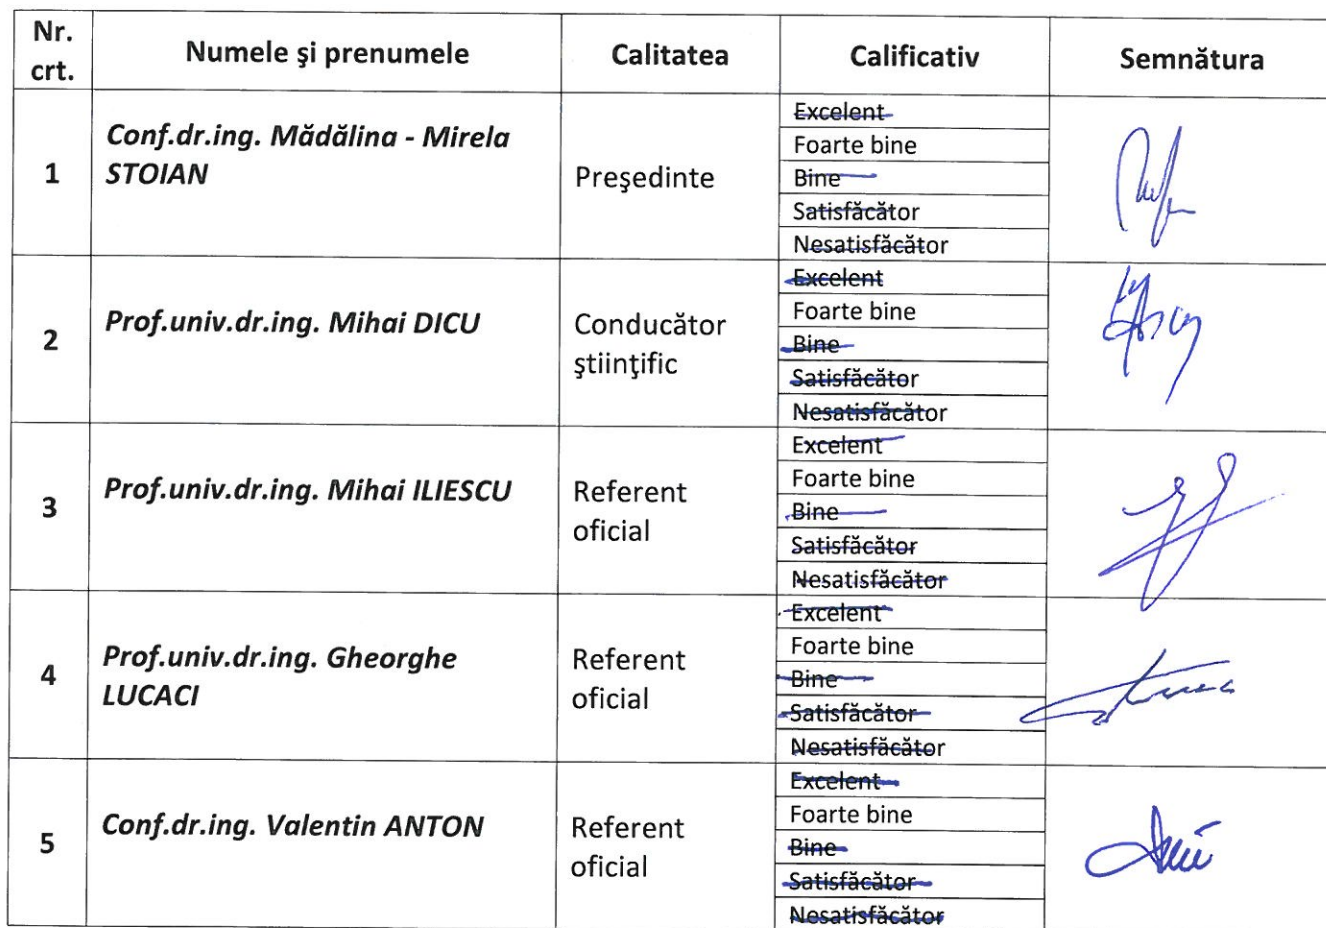 Nr. crt. Numele şi prenumele Calitatea Calificativ Semnătura
1
Conf.dr.ing. Mădălina - Mirela
STOIAN
Preşedinte
Excelent
Foarte bine
Bine
Satisfăcător
Nesatisfăcător
2
Prof.univ.dr.ing. Mihai DICU
Conducător
ştiinţific
Excelent
Foarte bine
Bine
Satisfăcător
Nesatisfăcător
3
Prof.univ.dr.ing. Mihai ILIESCU
Referent
oficial
Excelent
Foarte bine
Bine
Satisfăcător
Nesatisfăcător
4
Prof.univ.dr.ing. Gheorghe
LUCACI
Referent
oficial
Excelent
Foarte bine
Bine
Satisfăcător
Nesatisfăcător
5
Conf.dr.ing. Valentin ANTON
Referent
oficial
Excelent
Foarte bine
Bine
Satisfăcător
Nesatisfăcător